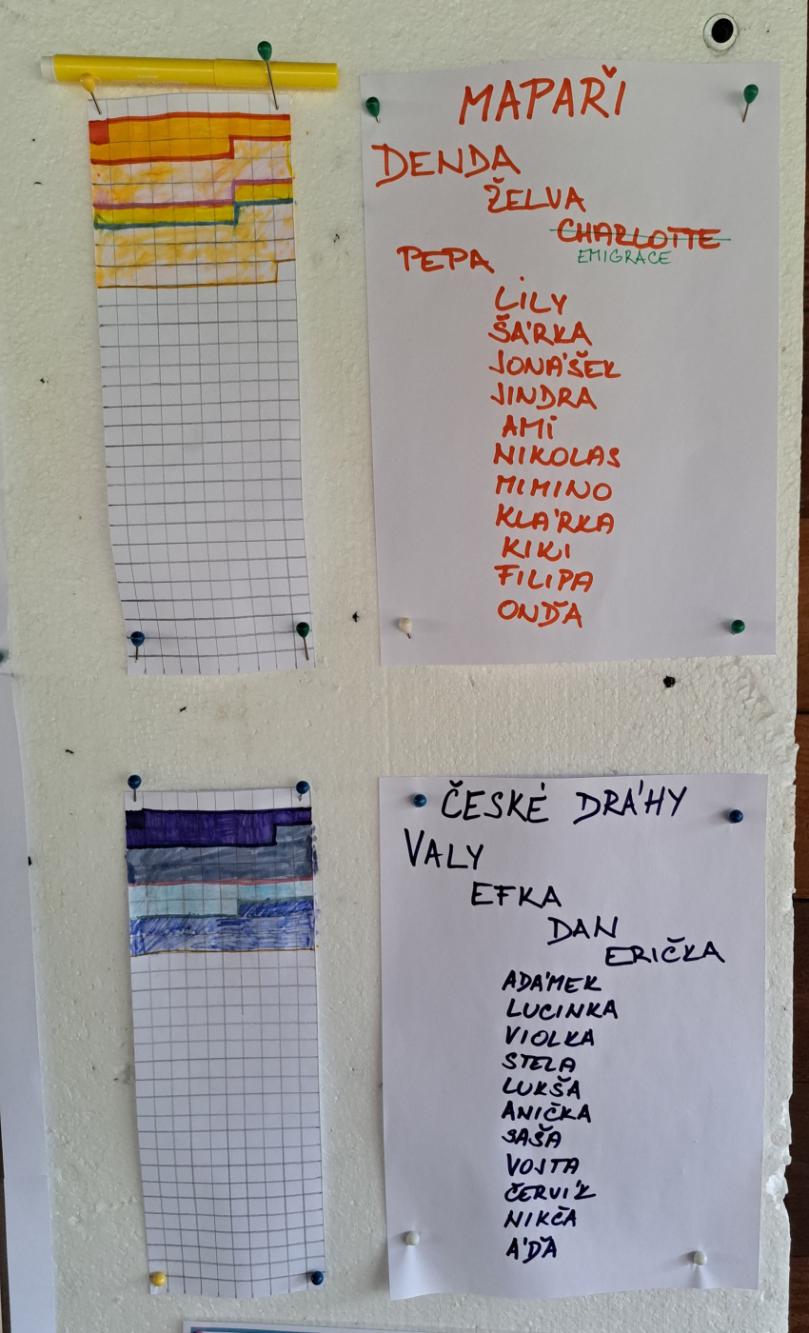 MAPAŘI
DENDA
ŽELVA
CHARLOTTE
EMIGRACE
PEPA
LILY
ŠÁRKA
JONÁŠEK
JINDRA
AMI
NIKOLAS
MIMINO
KLÁRKA
KIKI
FILIPA
ONĎA
ČESKÉ DRÁHY
VALY
EFKA
DAN
ERIČKA
ADÁMEK
LUCINKA
VIOLKA
STELA
LUKŠA
ANIČKA
SAŠA
VOJTA
ČERVÍK
NIKČA
ÁĎA